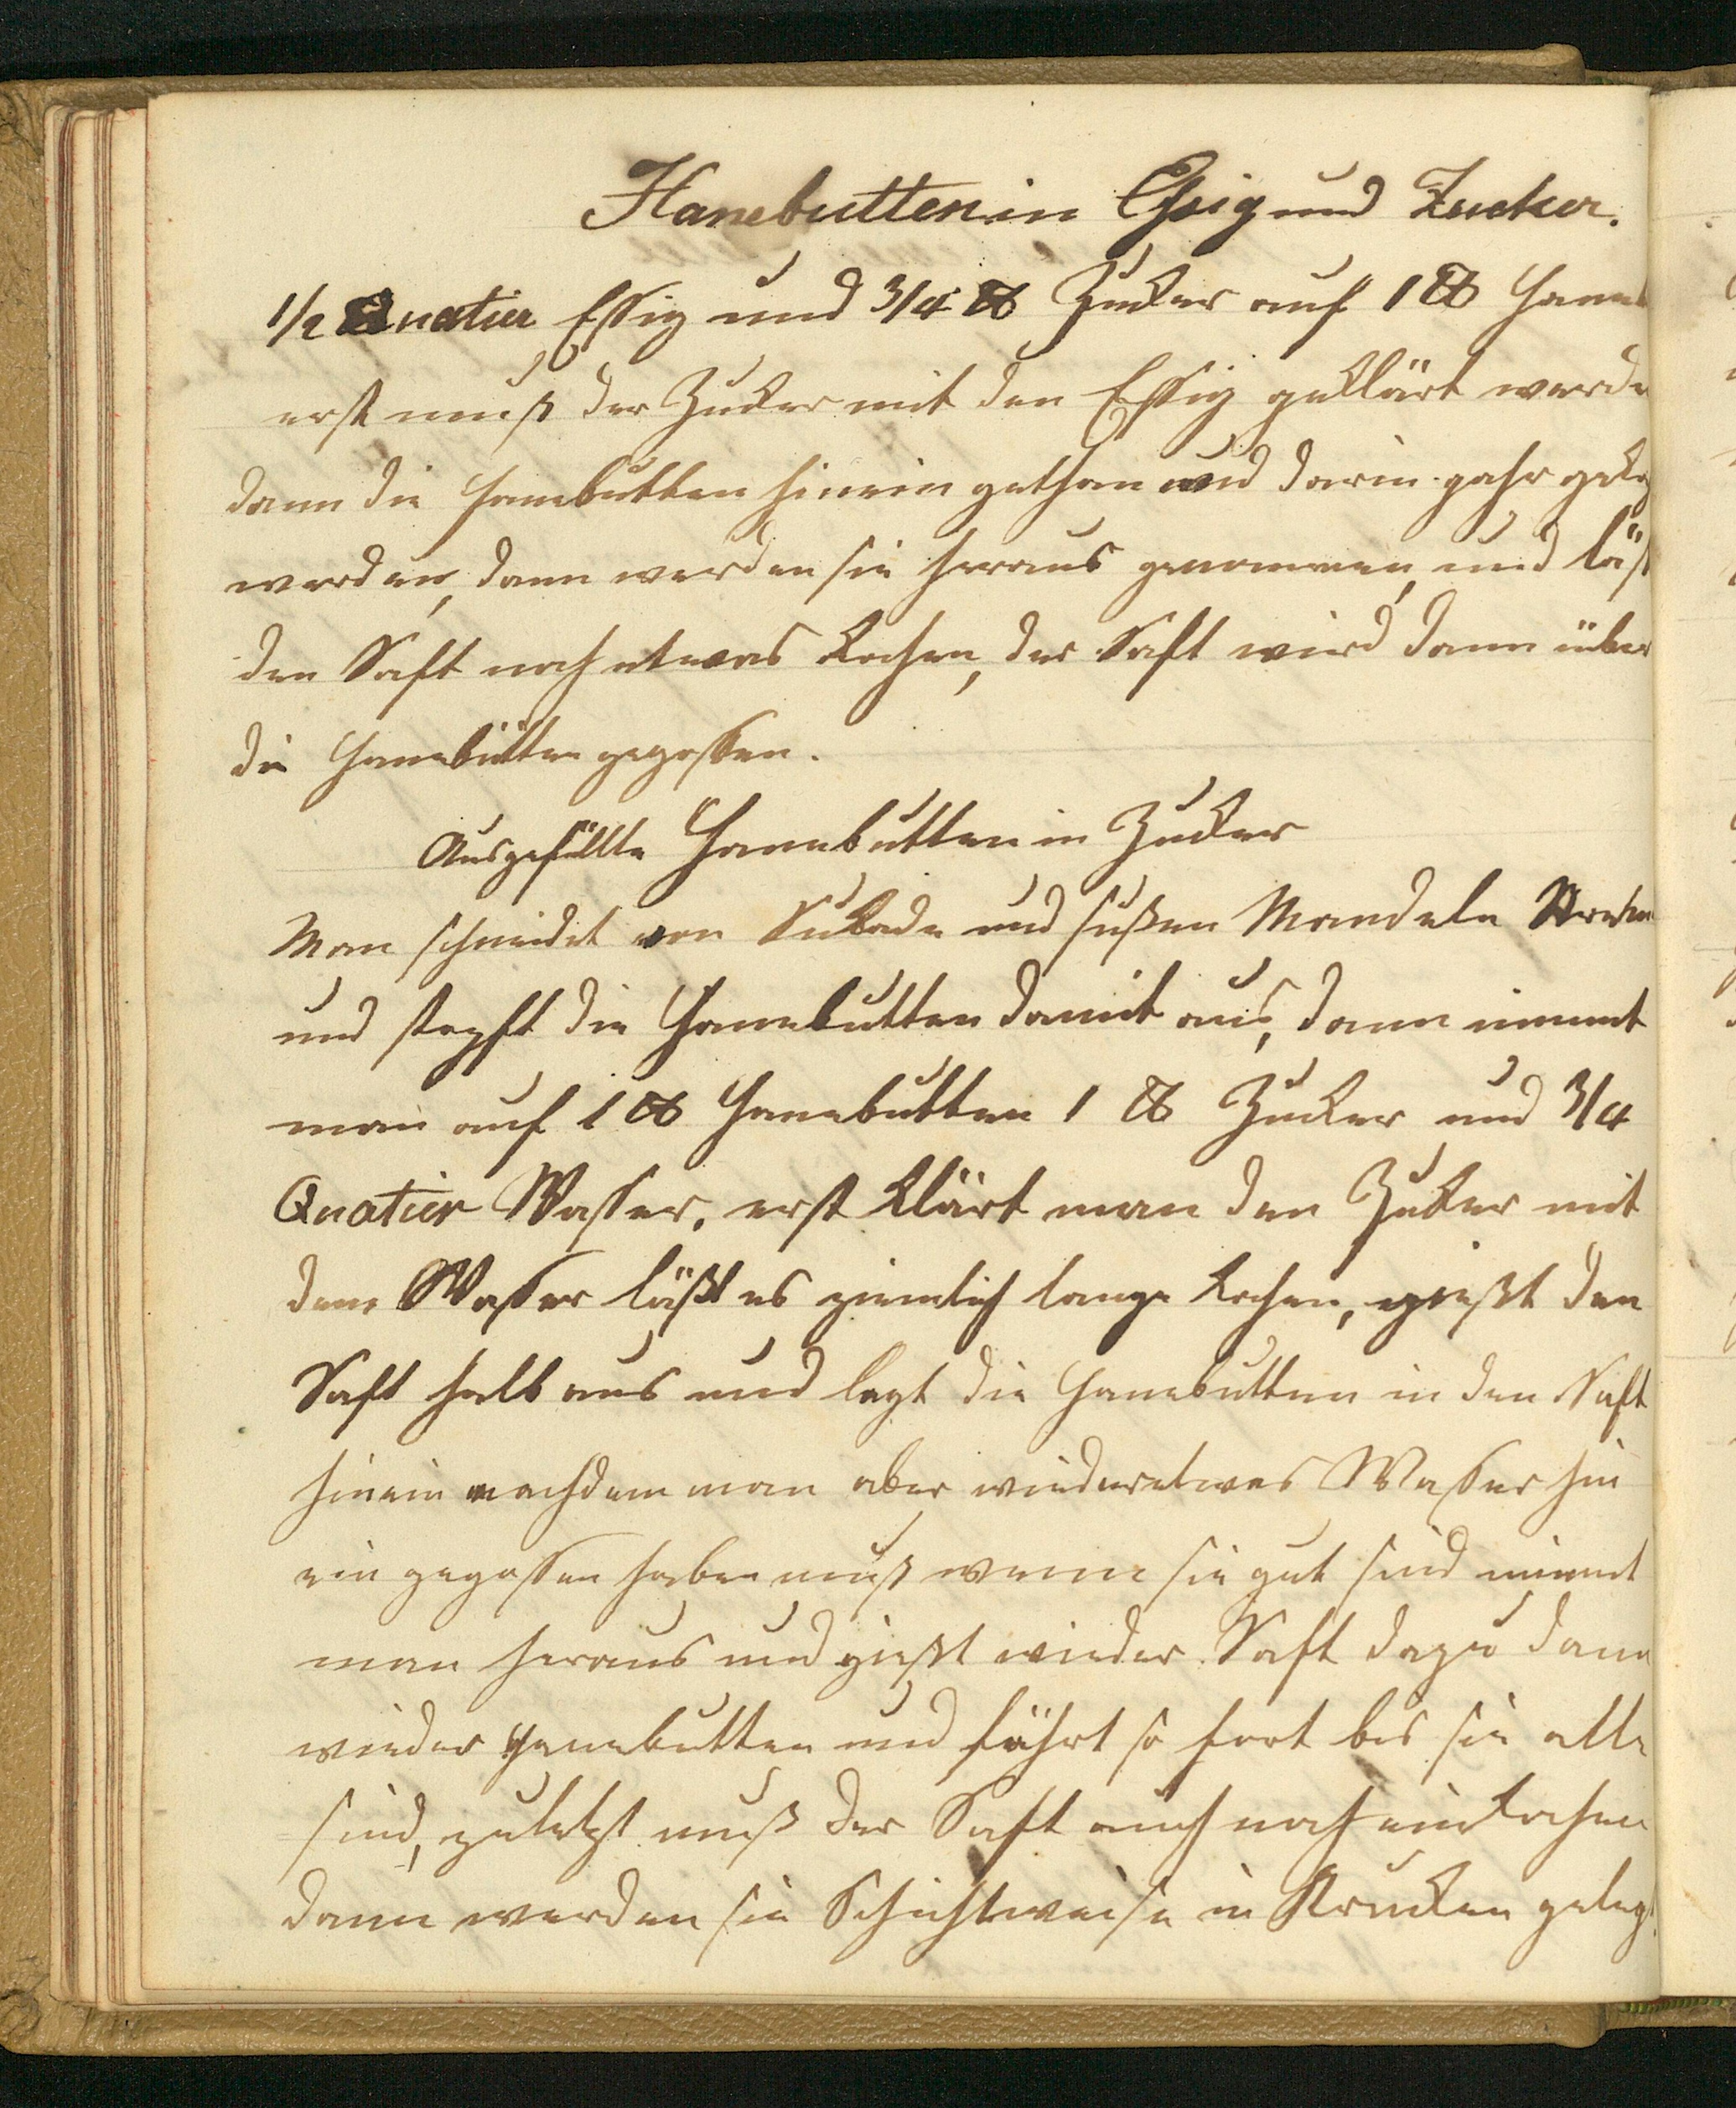 Hanebutten in Essig und Zucker.
1/2 Quatier Essig und 3/4 ℔ Zucker auf 1 ℔ Haneb
erst muß der Zucker mit den Essig geklärt werde
dann die Hanebutten hinein gethan und darin gahr geko
werden, dann werden sie heraus genommen, und läßt
den Saft noch etwas kochen, der Saft wird dann über
die Hanebutten gegossen.
Ausgefüllte Hanebutten in Zucker
Man schneidet von Sukade und süßen Mandeln
und stopft die Hanebutten damit aus, dann nimmt
man auf 1 ℔ Hanebutten 1 ℔ Zucker und 3/4
Quatier Wasser, erst klärt man den Zucker mit
dem Wasser läßt es ziemlich lange kochen, gießt den
Saft halb aus und legt die Hanebutten in den Saft
hinein nachdem man aber wieder etwas Wasser hin
ein gegossen haben muß wenn sie gut sind nimmt
man heraus und gießt wieder Saft dazu dann
wieder Hanebutten und fährt so fort bis sie alle
sind, zuletzt muß der Saft auch noch einkochen
dann werden sie Schichtweise in Krucken gelegt.